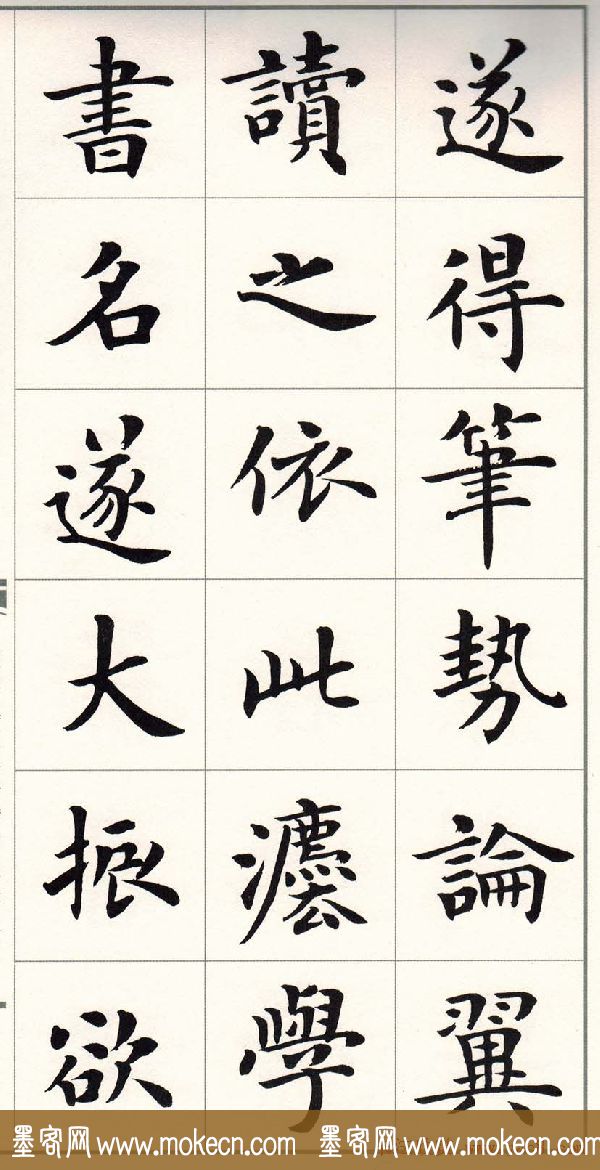 遂得筆勢論翼
讀之依此灋學
書名遂大振欲
墨客网 www.mokecn.com 墨客网 www.mokecn.com